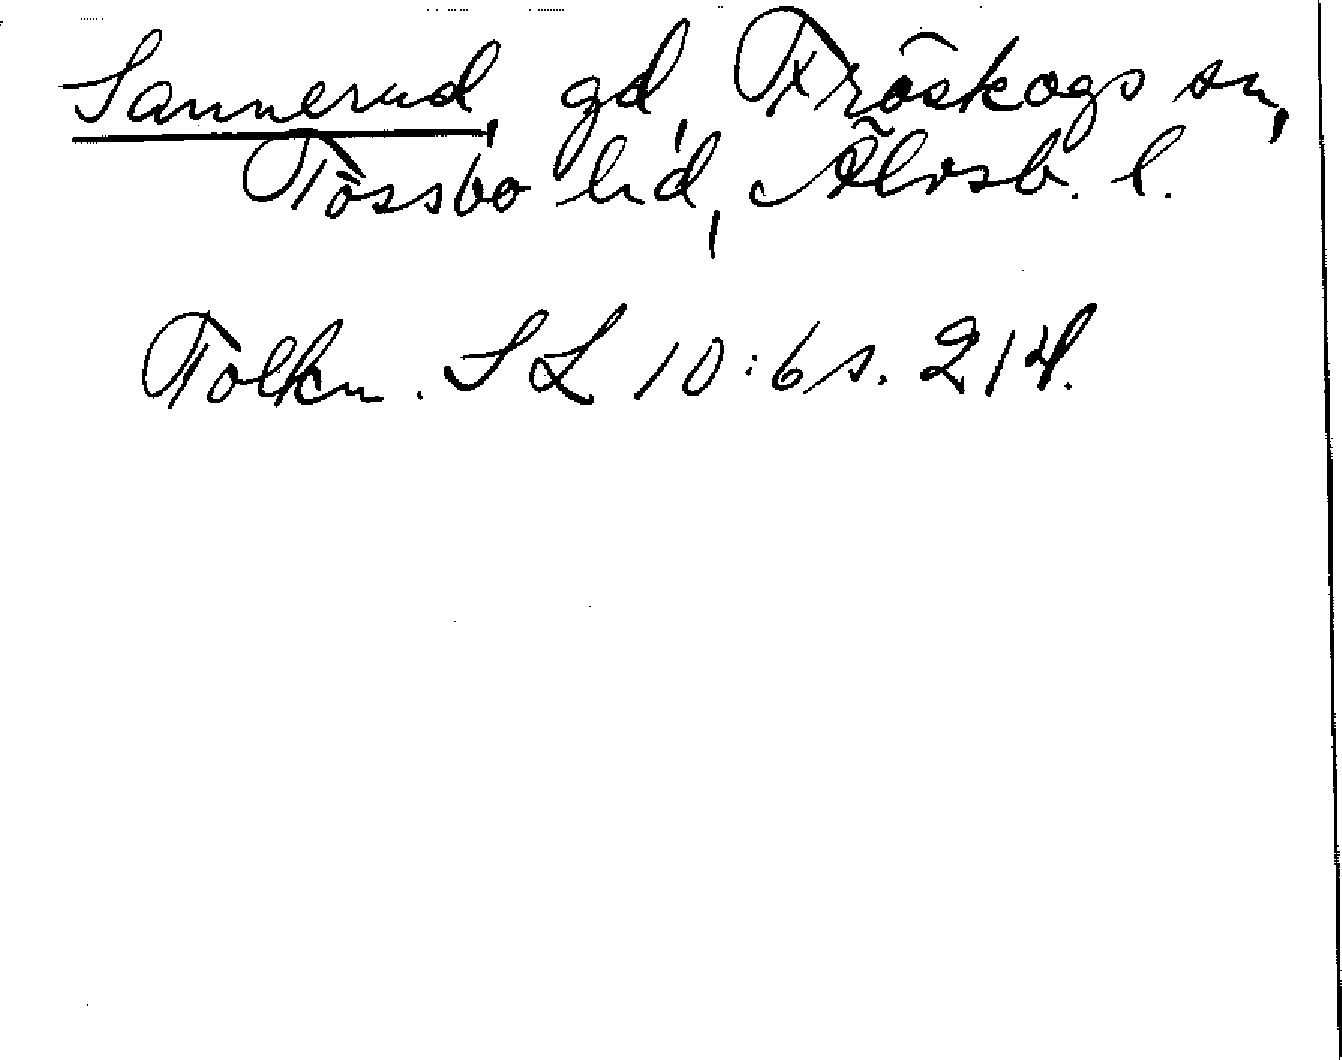 Sannerud, gd, Fröskogs sn,
Tössbo hd, Älvsb. l.
Tolkn. SL 10:6 s. 214.